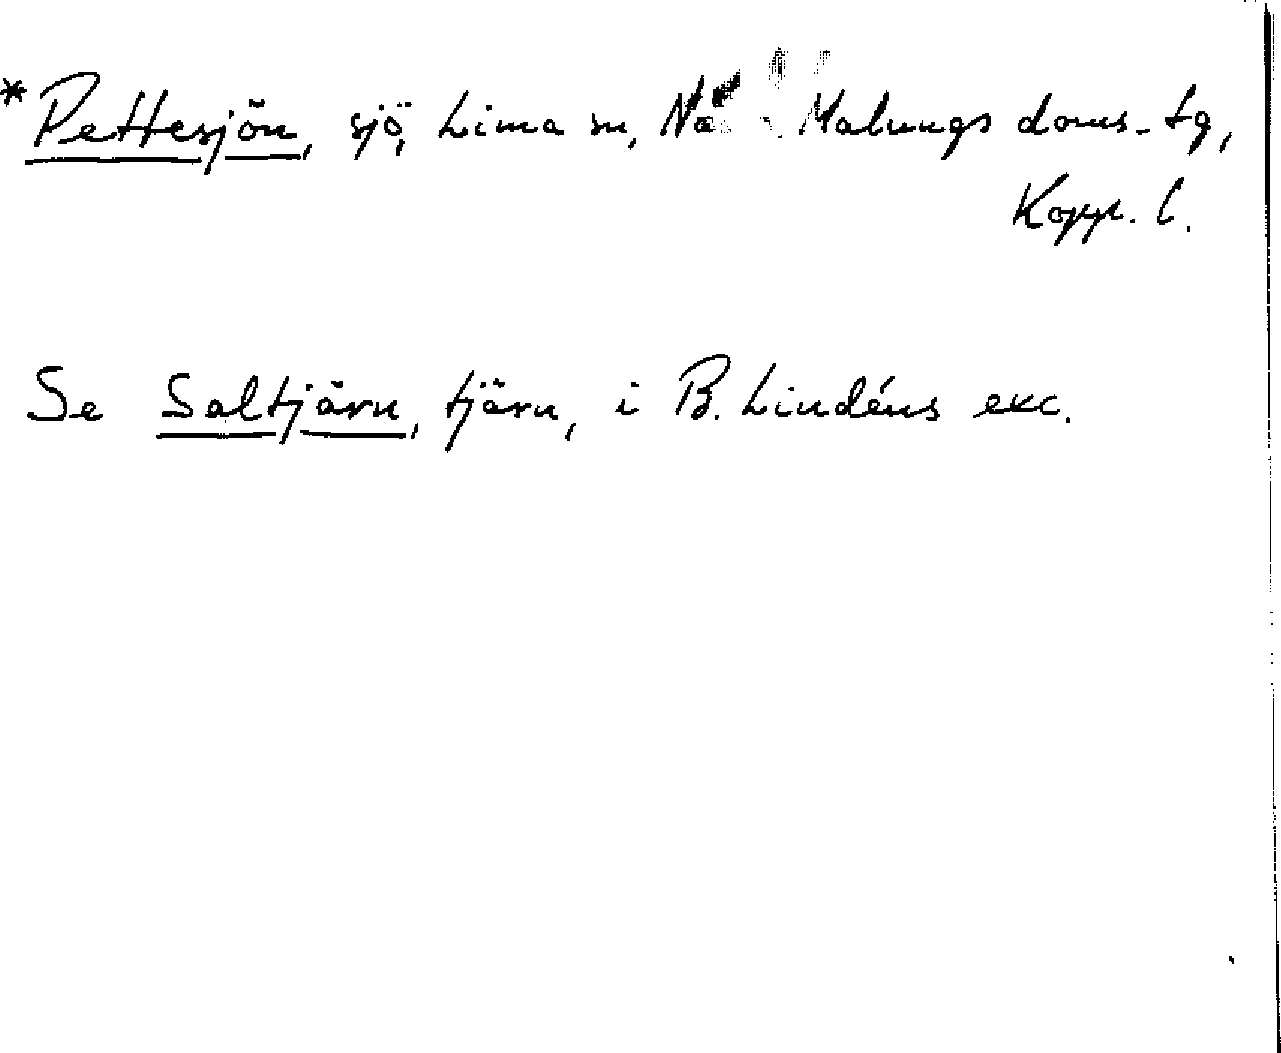 *Pettesjön, sjö, Lima sn, Malungs doms-tg,
Kopp. l.
Se Saltjärn, tjärn, i B. Lindéns exc.